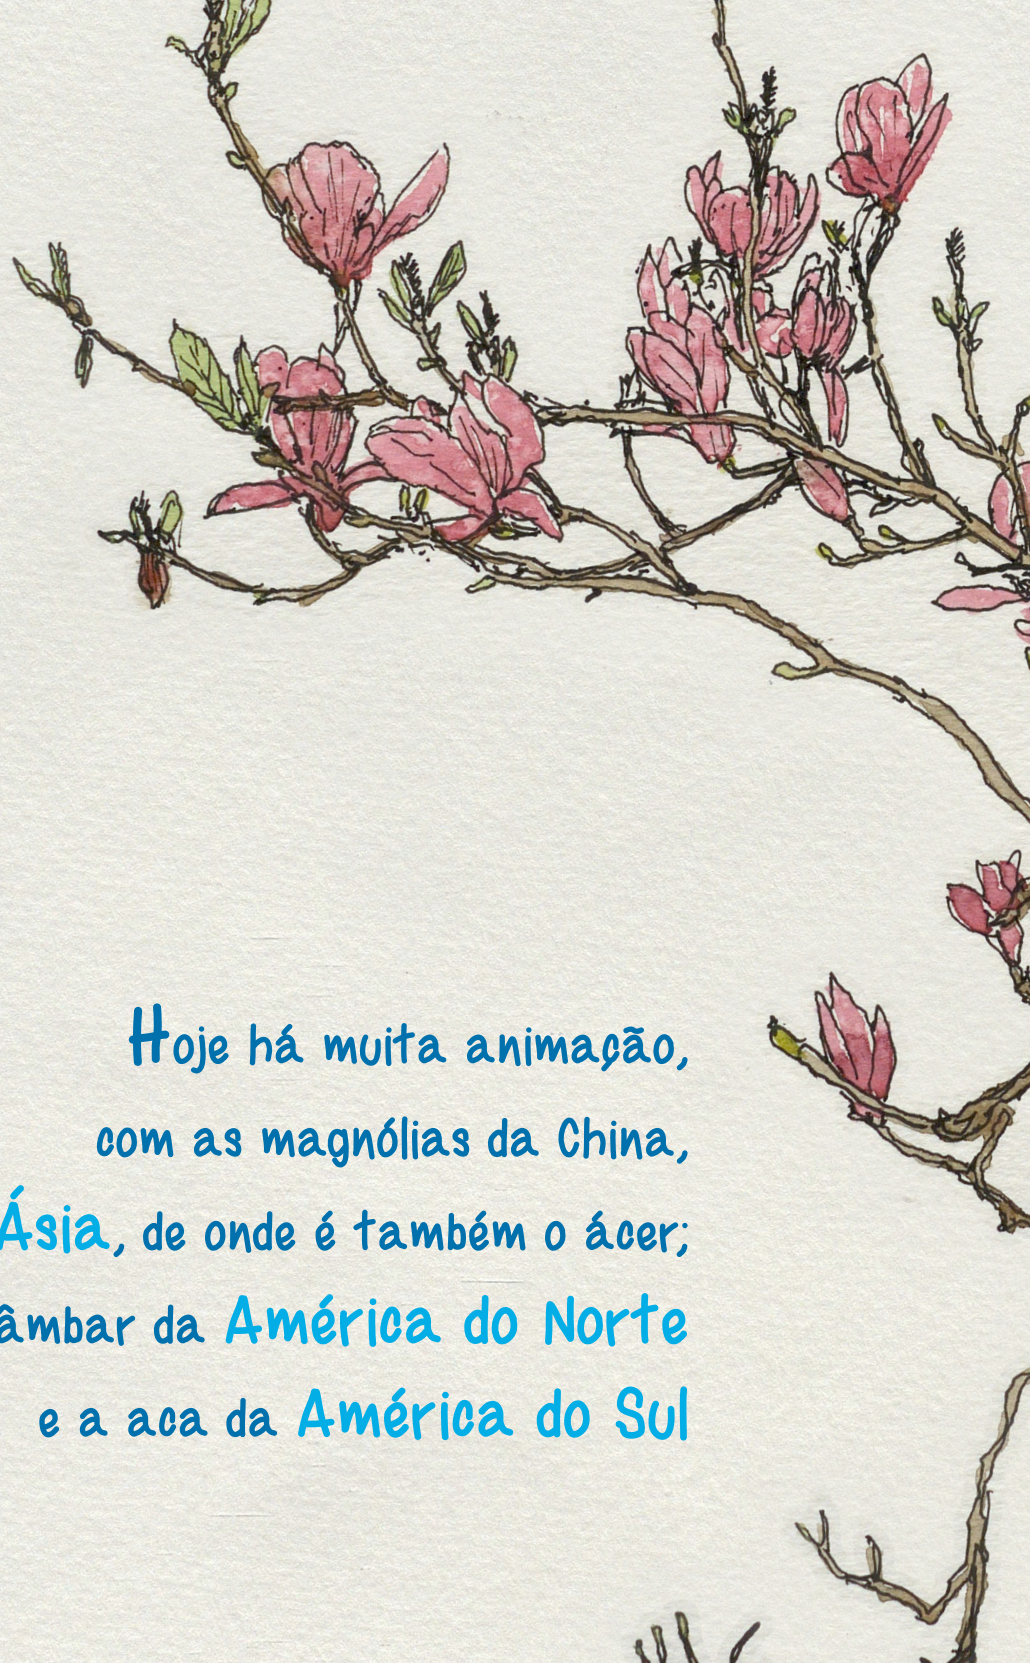 Hoje há muita animação,
com as magnólias da China,
Ásia, de onde é também o ácer;
âmbar da América do Norte
e a aca da América do Sul